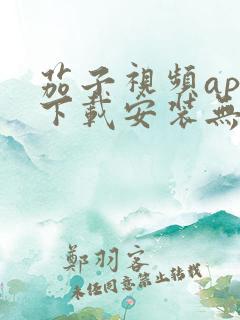 茄子視頻ap
下載安裝無
鄭羽客
未经同意禁止转载